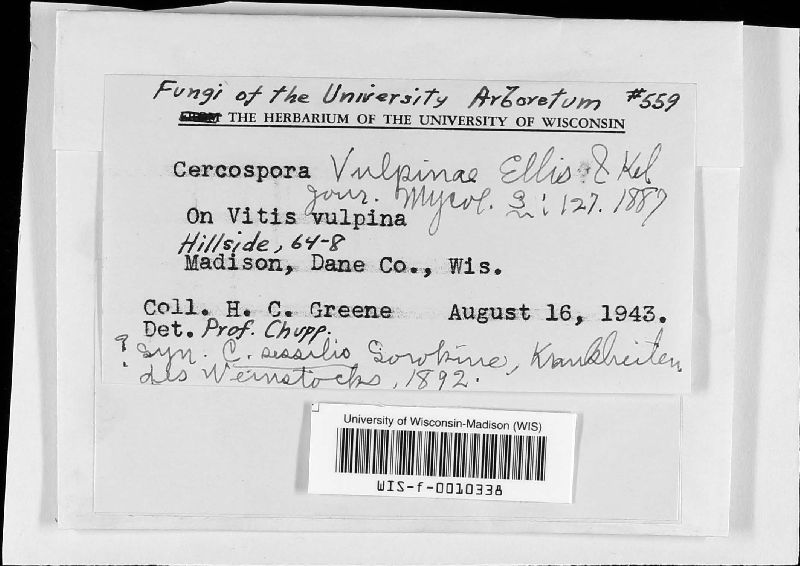 Fungi of the University Arboretum #559
THE HERBARIUM OF THE UNIVERSITY OF WISCONSIN
Cercospora Vulpinae Ellis & Kel
Jour. Mycol. 3: 127. 1887
On Vitis vulpina
Hillside, 64-8
Madison, Dane Co., Wis.
Coll. H. C. Greene August 16, 1943.
Det. Prof. Chupp.
? Syn. C. sessilis Sorokine, Krankheiten
des Weinstocks, 1892.
University of Wisconsin-Madison (WIS)
WIS-f-0010338